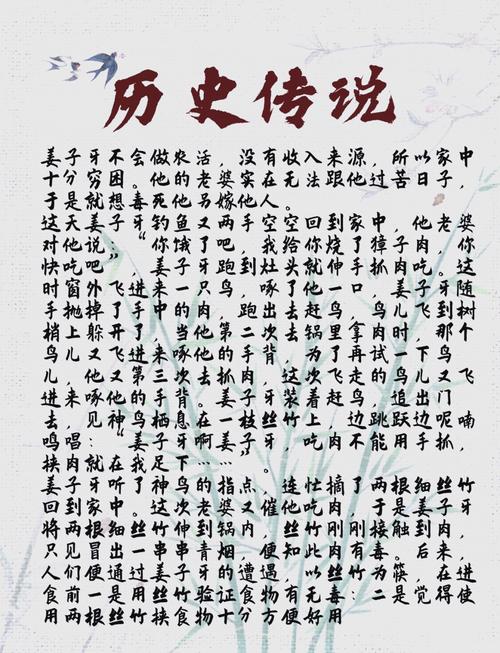 历史传说
姜子牙不会做农活,没有收入来源,所以家中
十分穷困。他的老婆实在无法跟他过苦日子,
于是就想毒死他另嫁他人。
这天姜子牙钓鱼又两手空空回到家中,他老婆
对他说:“你饿了吧,我给你烧了獐子肉你
快吃吧”,姜子牙跑到灶头就伸手抓肉吃。这
时窗外飞进来一只鸟,啄了他一口,姜子牙随
手抛掉手中的肉,跑出去赶鸟,鸟儿飞到树
梢上躲了开。当他第二次赶去锅里拿肉时,那个
鸟儿又飞进来啄他的手背,为了再试一下鸟
儿,他又第三次去抓肉,鸟又飞
进来啄他手背。姜子牙装着赶走鸟,追出门
去,见神鸟栖息在一枝丝竹上,边跳跃边呢喃,
鸣唱:“姜子牙啊姜子牙,吃肉不能用手抓,
挟肉就在我足下……”。
姜子牙听了神鸟的指点,连忙摘了两根细丝竹
回到家中。他的老婆又催他吃肉,于是姜子牙
将两根细丝竹伸到锅内,丝竹刚刚接触到肉,
只见冒出一串串青烟,便知此肉有毒。后来,
人们便通过姜子牙的遭遇,以丝竹为筷,在进
食前用丝竹验证食物有无毒:二是觉得使
用两根丝竹挟食物十分方便好用